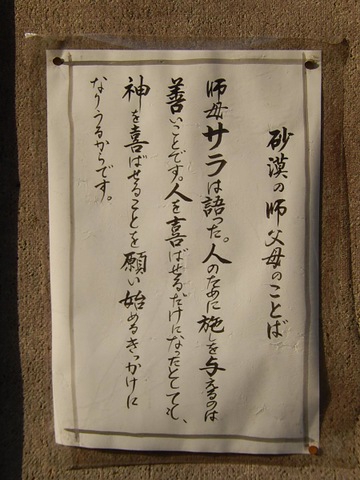 砂漠の師父母のことば
師母サラは語った。人のために施しを与えるのは
善いことです。人を喜ばせるだけになったとしても、
神を喜ばせることを願い始めるきっかけに
なりうるからです。